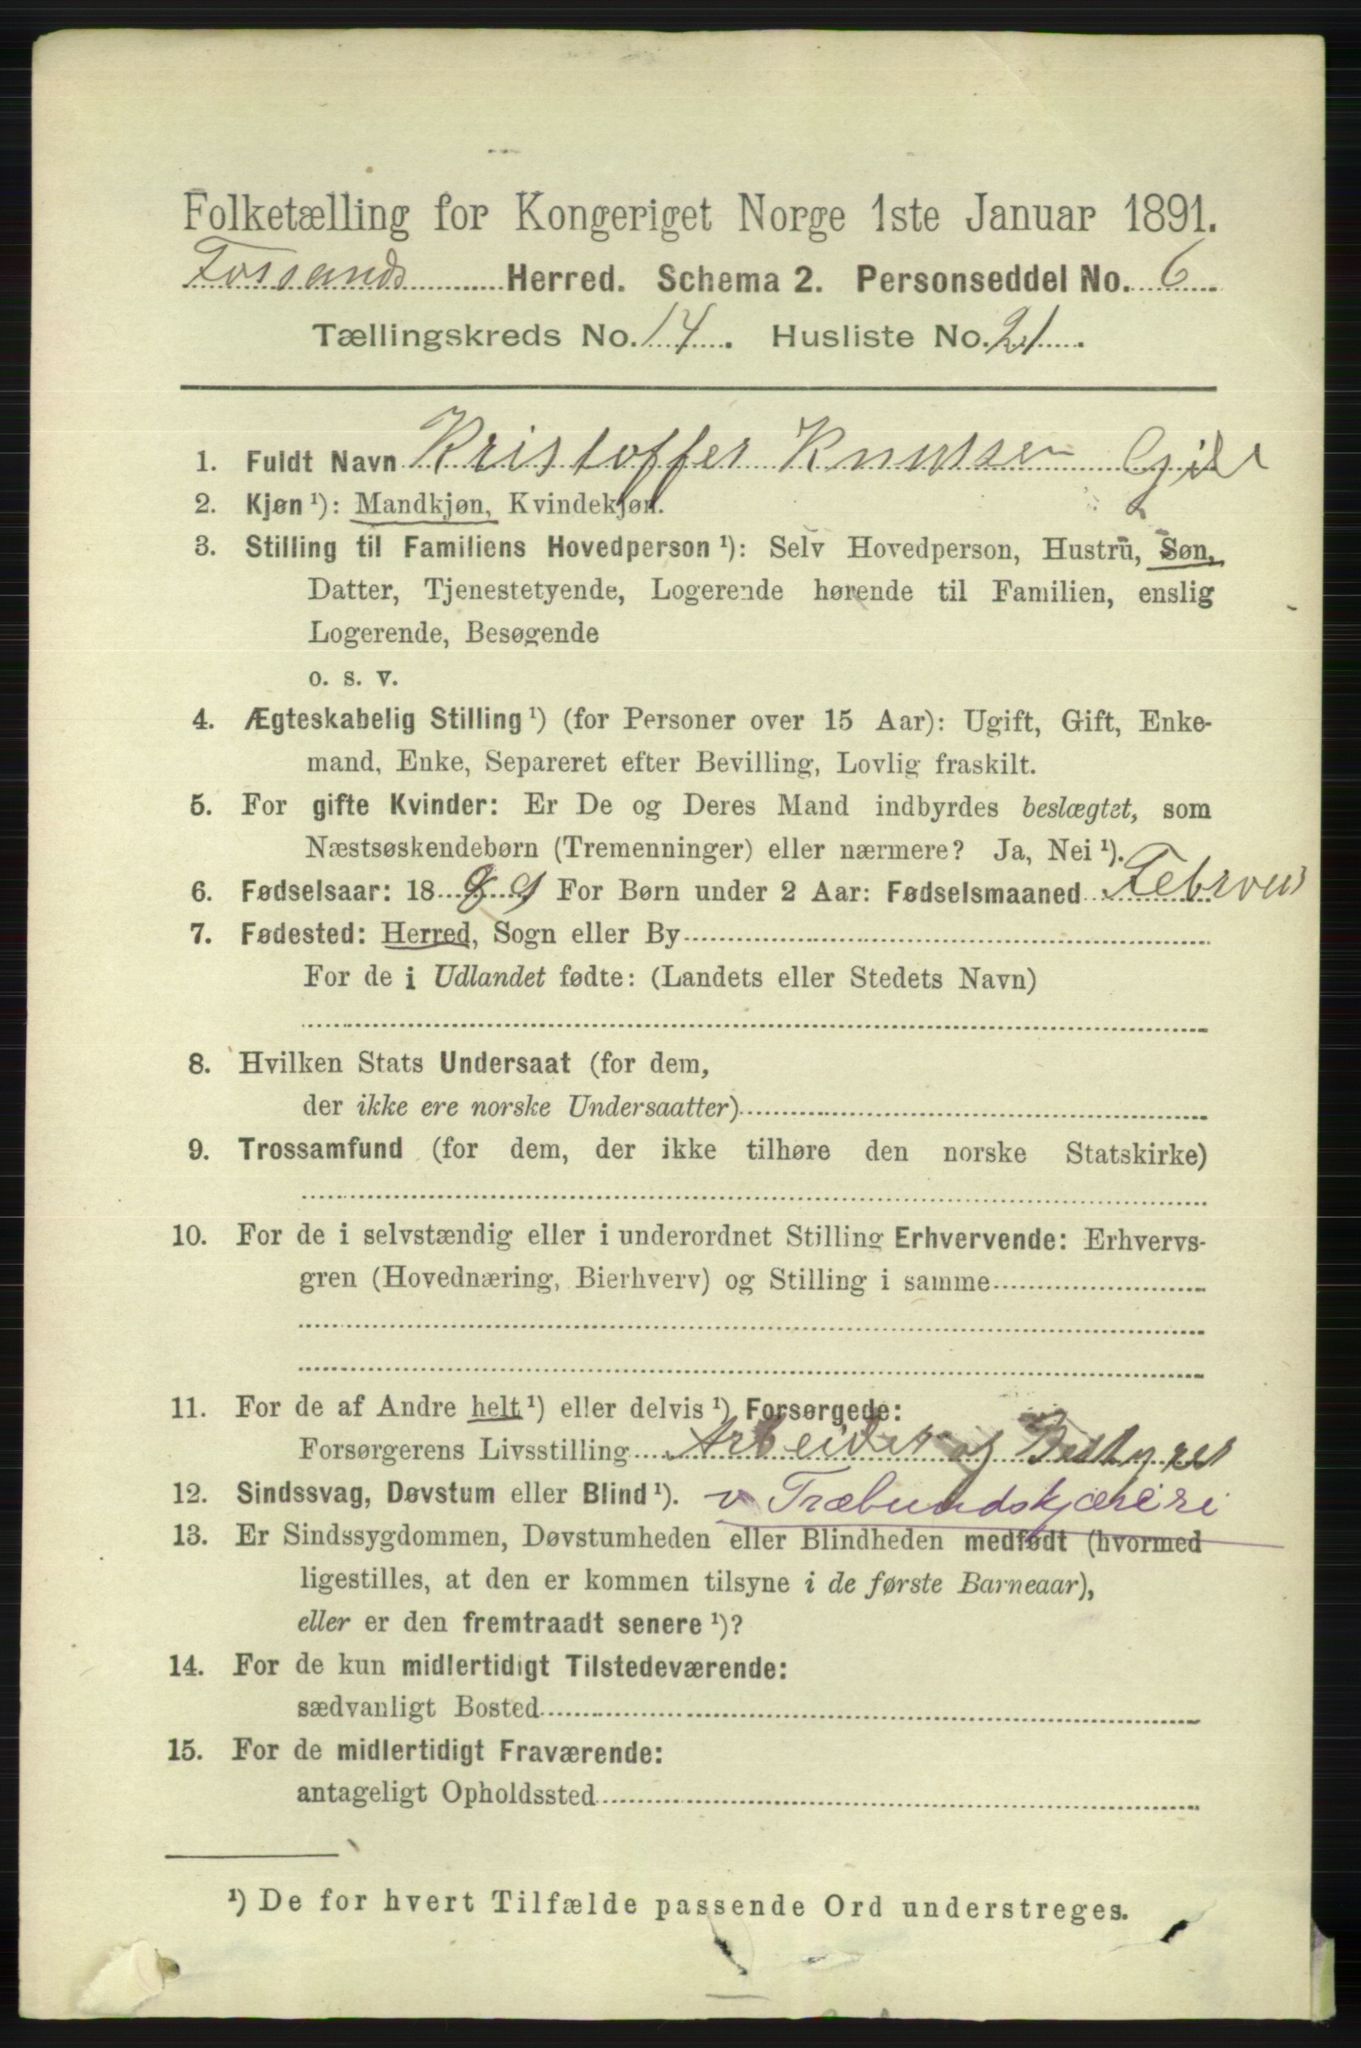 Folketælling for Kongeriget Norge 1ste Januar 1891.
Fossands Herred. Schema 2. Personseddel No. 6
Tællingskreds No. 14. Husliste No. 21.
1. Fuldt Navn Kristoffer Knutsen
2. Kjøn ¹): Mandkjøn, Kvindekjøn.
3. Stilling til Familiens Hovedperson ¹): Selv Hovedperson, Hustru, Søn,
Datter, Tjenestetyende, Logerende hørende til Familien, enslig
Logerende, Besøgende
o. s. v.
4. Ægteskabelig Stilling ¹) (for Personer over 15 Aar): Ugift, Gift, Enke-
mand, Enke, Separeret efter Bevilling, Lovlig fraskilt.
5. For gifte Kvinder: Er De og Deres Mand indbyrdes beslægtet, som
Næstsøskendebørn (Tremenninger) eller nærmere? Ja, Nei ¹).
6. Fødselsaar: 1889 For Børn under 2 Aar: Fødselsmaaned
7. Fødested: Herred, Sogn eller By
For de i Udlandet fødte: (Landets eller Stedets Navn)
8. Hvilken Stats Undersaat (for dem,
der ikke ere norske Undersaatter)
9. Trossamfund (for dem, der ikke tilhøre den norske Statskirke)
10. For de i selvstændig eller i underordnet Stilling Erhvervende: Erhvervs-
gren (Hovednæring, Bierhverv) og Stilling i samme
11. For de af Andre helt ¹) eller delvis ¹) Forsørgede:
Forsørgerens Livsstilling Arbeider og Bestyrer
12. Sindssvag, Døvstum eller Blind ¹). v Træbundskjæreri
13. Er Sindssygdommen, Døvstumheden eller Blindheden medfødt (hvormed
ligestilles, at den er kommen tilsyne i de første Barneaar),
eller er den fremtraadt senere ¹)?
14. For de kun midlertidigt Tilstedeværende:
sædvanligt Bosted
15. For de midlertidigt Fraværende:
antageligt Opholdssted
¹) De for hvert Tilfælde passende Ord understreges.